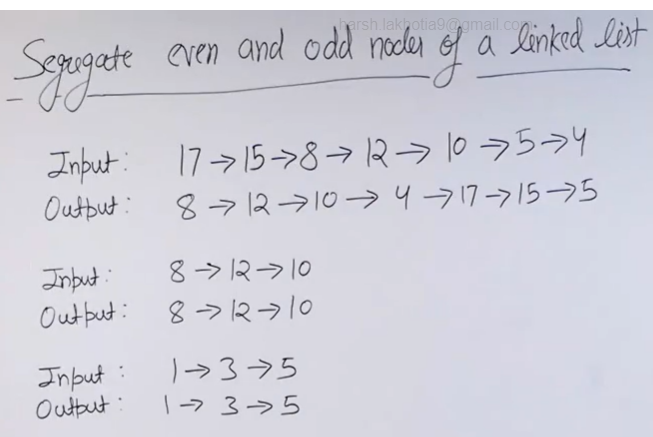 harsh.lakhotia9@gmail.com
Segregate even and odd nodes of a linked list
Input: 17 → 15 → 8 → 12 → 10 → 5 → 4
Output: 8 → 12 → 10 → 4 → 17 → 15 → 5
Input: 8 → 12 → 10
Output: 8 → 12 → 10
Input: 1 → 3 → 5
Output: 1 → 3 → 5